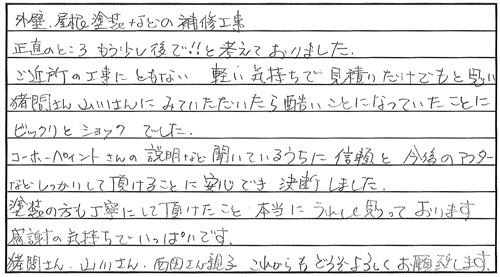 外壁、屋根塗装などの補修工事
正直のところ もう少し後で!!と考えておりました.
ご近所の工事にともない 軽い気持ちで見積りだけでもと思い
猪間さん 山川さんに みていただいたら酷いことになっていたことに
ビックリとショックでした.
コーホーペイントさんの説明など聞いているうちに信頼と今後のアフター
などしっかりして頂けることに安心でき 決断しました.
塗装の方も丁寧にして頂けたこと 本当にうれしく思っております
感謝の気持ちでいっぱいです.
猪間さん、山川さん、西田さん親子 これからもどうぞよろしくお願致します